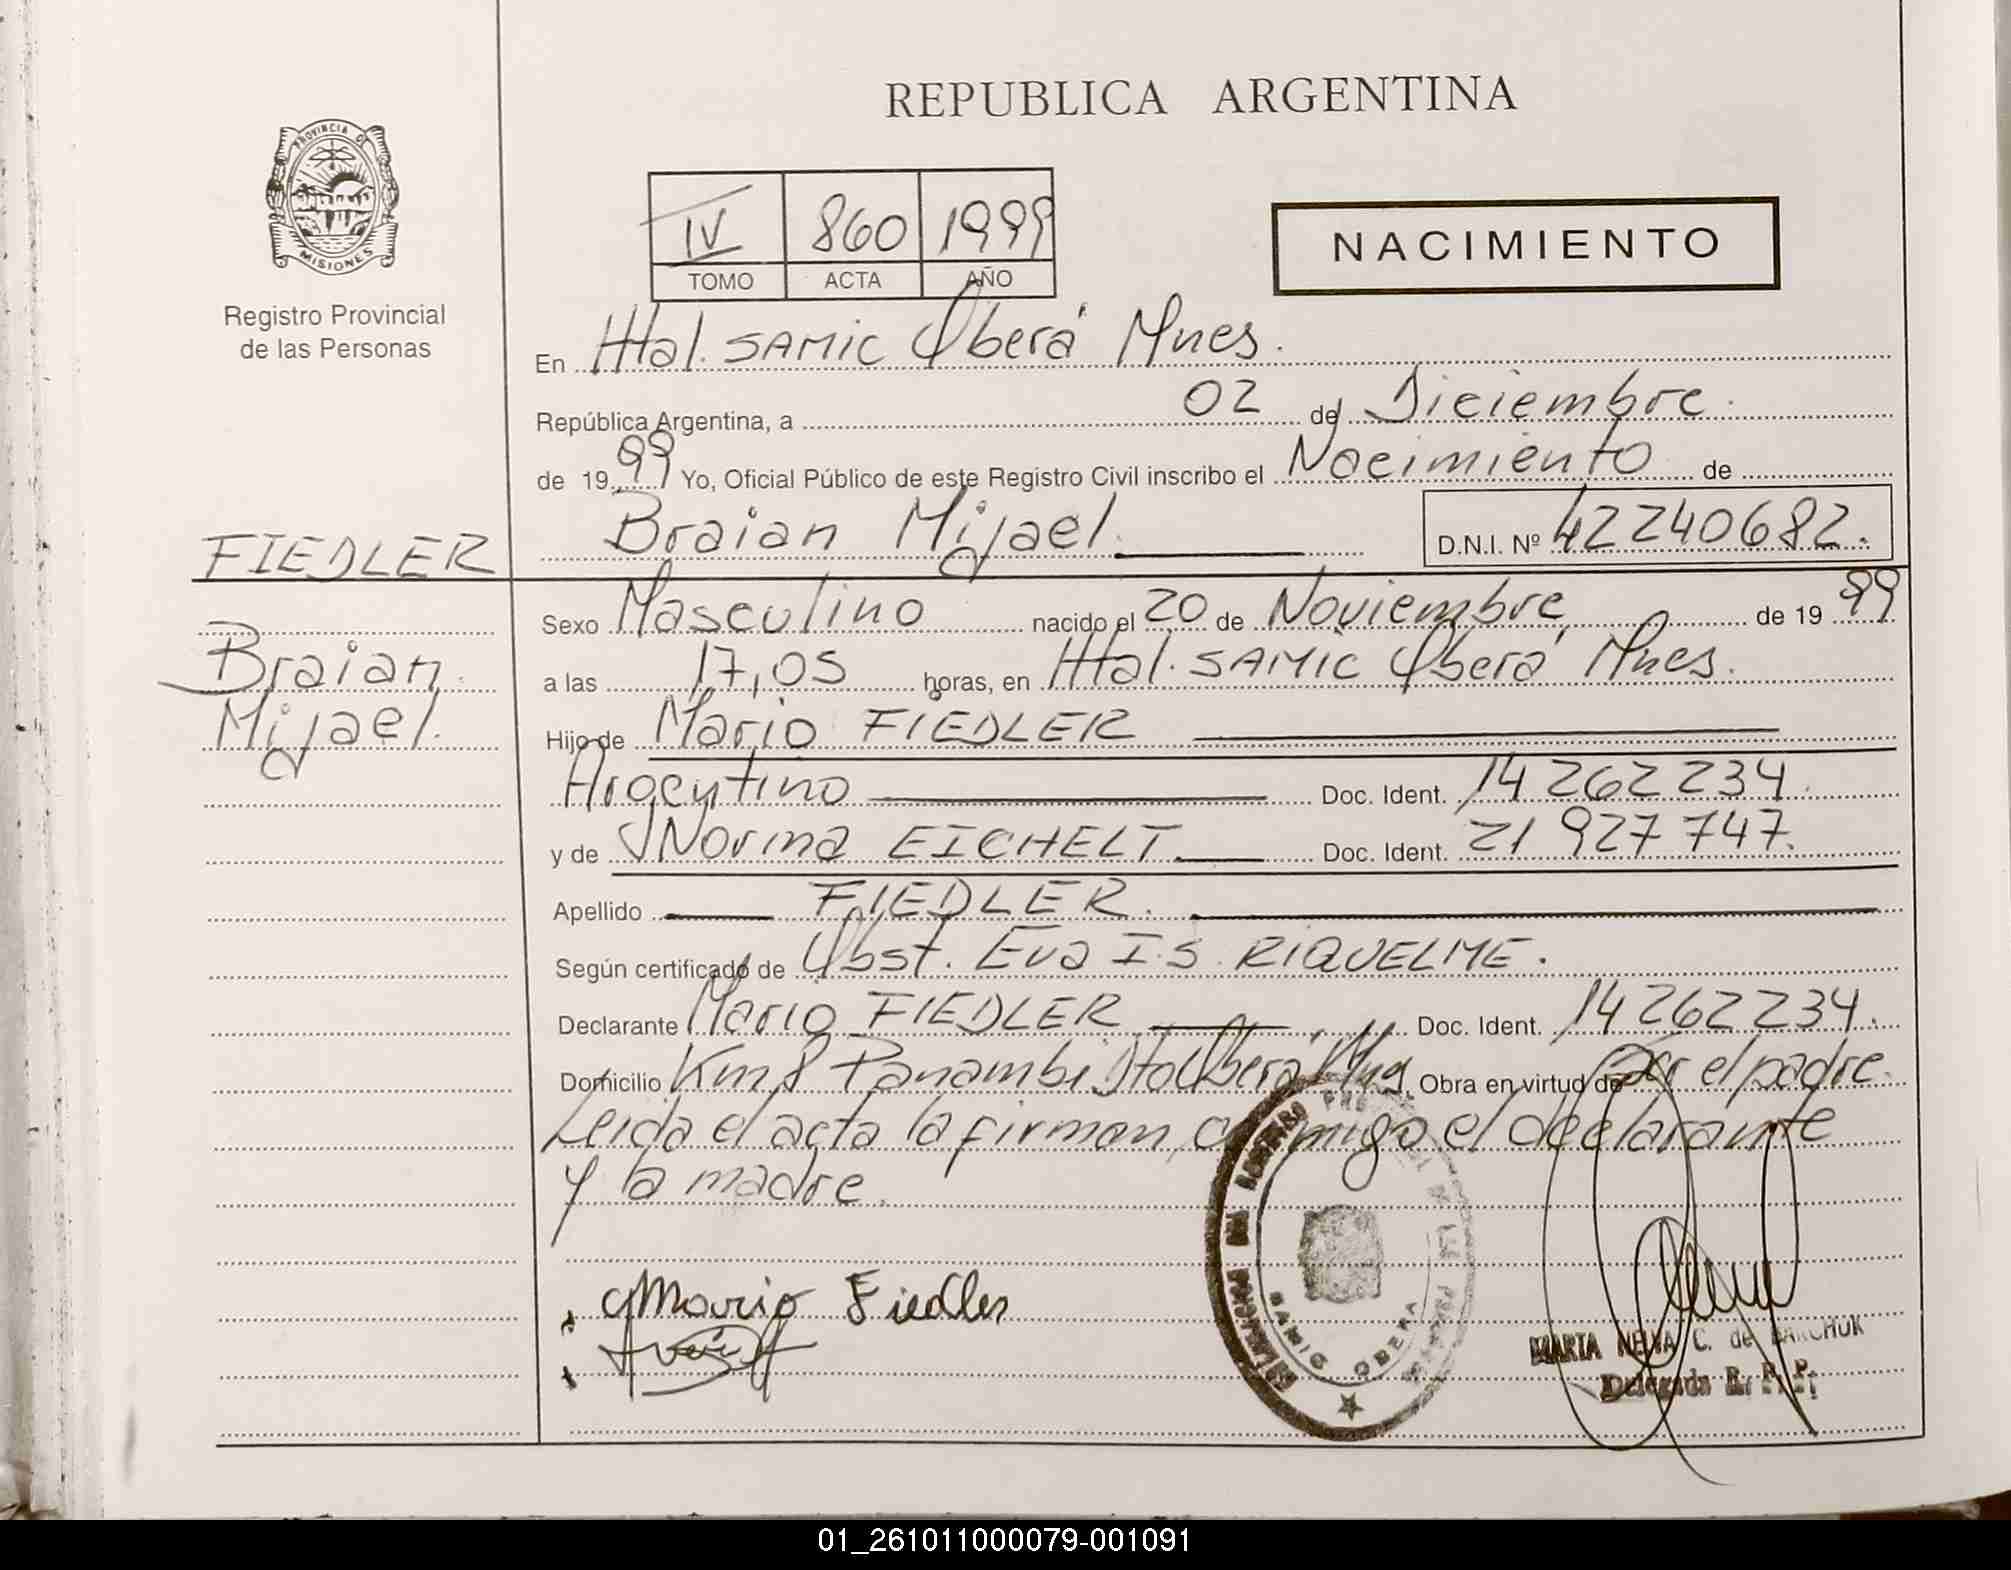 REPUBLICA ARGENTINA
PROVINCIA DE
MISIONES
Registro Provincial
de las Personas
IV 860 1999
TOMO ACTA AÑO
NACIMIENTO
En Htal. SAMIC Oberá Mnes.
República Argentina, a 02 de Diciembre.
de 1999 Yo, Oficial Público de este Registro Civil inscribo el Nacimiento de
Braian Mijael. D.N.I. Nº 42240682.
FIEDLER
Braian
Mijael.
Sexo Masculino nacido el 20 de Noviembre de 1999
a las 17,05 horas, en Htal. SAMIC Oberá Mnes.
Hijo de Mario FIEDLER
Argentino Doc. Ident. 14 262 234.
y de Norma EICHELT Doc. Ident. 21 927 747.
Apellido FIEDLER.
Según certificado de Obst. Eva I.S. RIQUELME.
Declarante Mario FIEDLER Doc. Ident. 14 262 234.
Domicilio Km 8 Panambi Oberá Obra en virtud de Ser el padre.
Leida el acta la firman conmigo el declarante
y la madre.
Mario Fiedler
SAMIC OBERA
MARTA C. de BARCHUK
Delegada R. P. P.
01_261011000079-001091